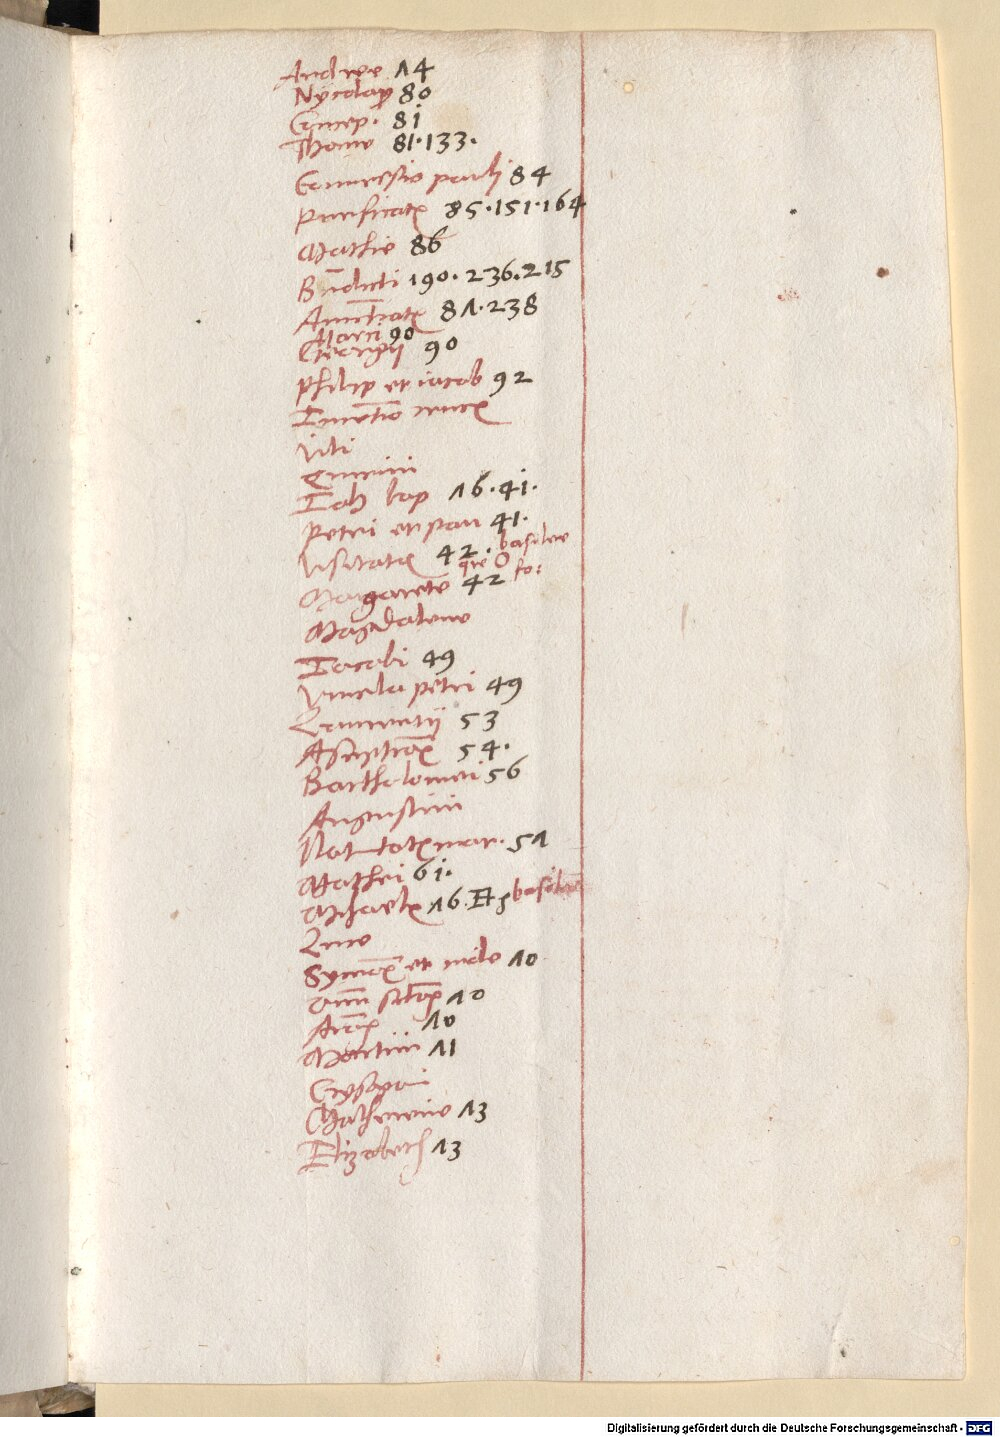 Andree ʌ4
Nycolay 80
Concep. 8i
Thome 81·133·
Conuersio pauli 84
Purificatꝭ 85·151·164
Mathie 86
Bn̄dicti 190·236·215
Anūtiatꝭ 8ʌ·238
Marci 90
Georgij 90
Philip et iacob 92
Inuētio crucꝭ
Viti
Quirini
Ioh bap ʌ6·4i·
Petri et pau 41·
Visitatꝭ 42· basilee
que O fo:
Margarete 42
Magdalene
Iacobi 49
Vincla petri 49
Laurentij 53
Asūptiōꝭ 54·
Bartholomei 56
Augustini
Natiuitatꝭ mar· 5ʌ
Mathei 6i·
Michaelꝭ ʌ6· Et basilee
Luce
Symoꝭ et iude ʌ0
Om̄ sct̄oꝝ ʌ0
ʌ0
Martini ʌ1
Crysogoni
Katherine ʌ3
Elizabeth ʌ3
Digitalisierung gefördert durch die Deutsche Forschungsgemeinschaft - DFG